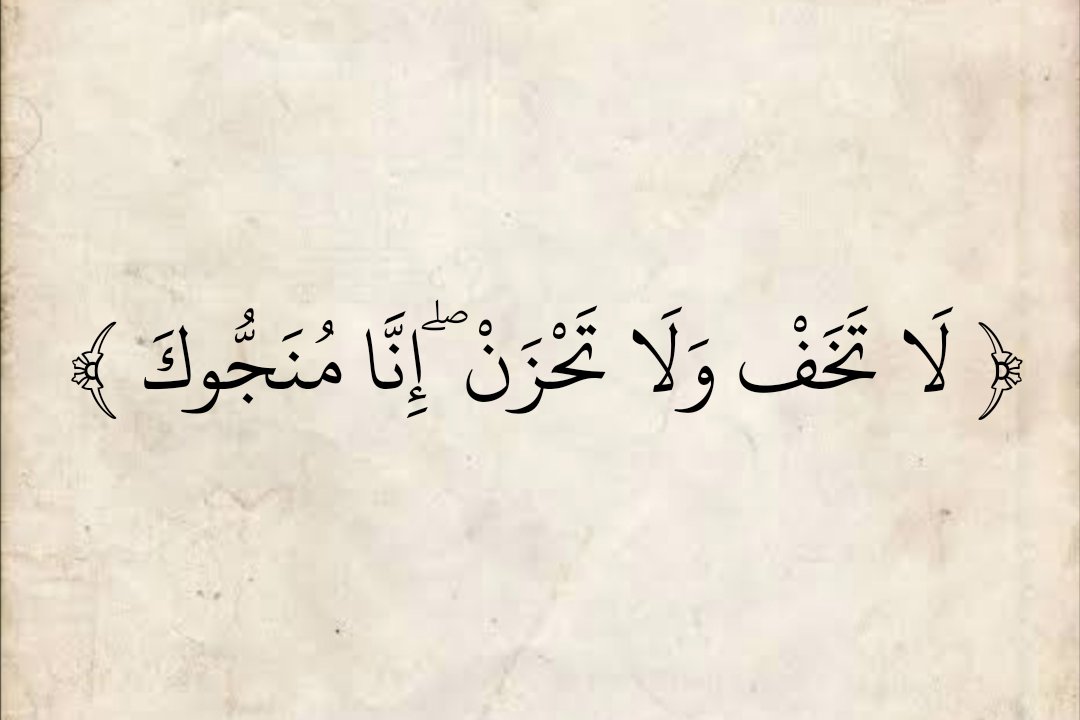 ﴿ لَا تَخَفْ وَلَا تَحْزَنْ ۖ إِنَّا مُنَجُّوكَ ﴾